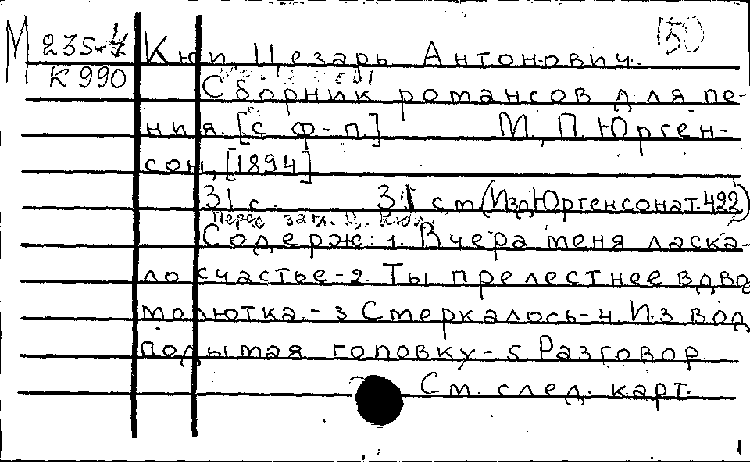 М 235-4 Кюи, Цезарь Антонович. 150
К 990
Сборник романсов для пе-
ния [с ф-п] М., П. Юрген-
сон, [1894]
31 с. 31 см (Изд. Юргенсона т. 492)
Перед загл. Ц. Кюи
Содерж: 1. Вчера меня ласка-
ло счастье - 2 Ты прелестнее вдво
малютка. - 3 Смеркалось - 4. Из вод
подымая головку - 5 Разговор
См. след. карт.
1